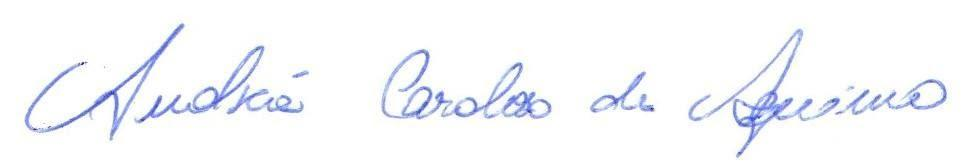 Andréa Cardoso de Aquino